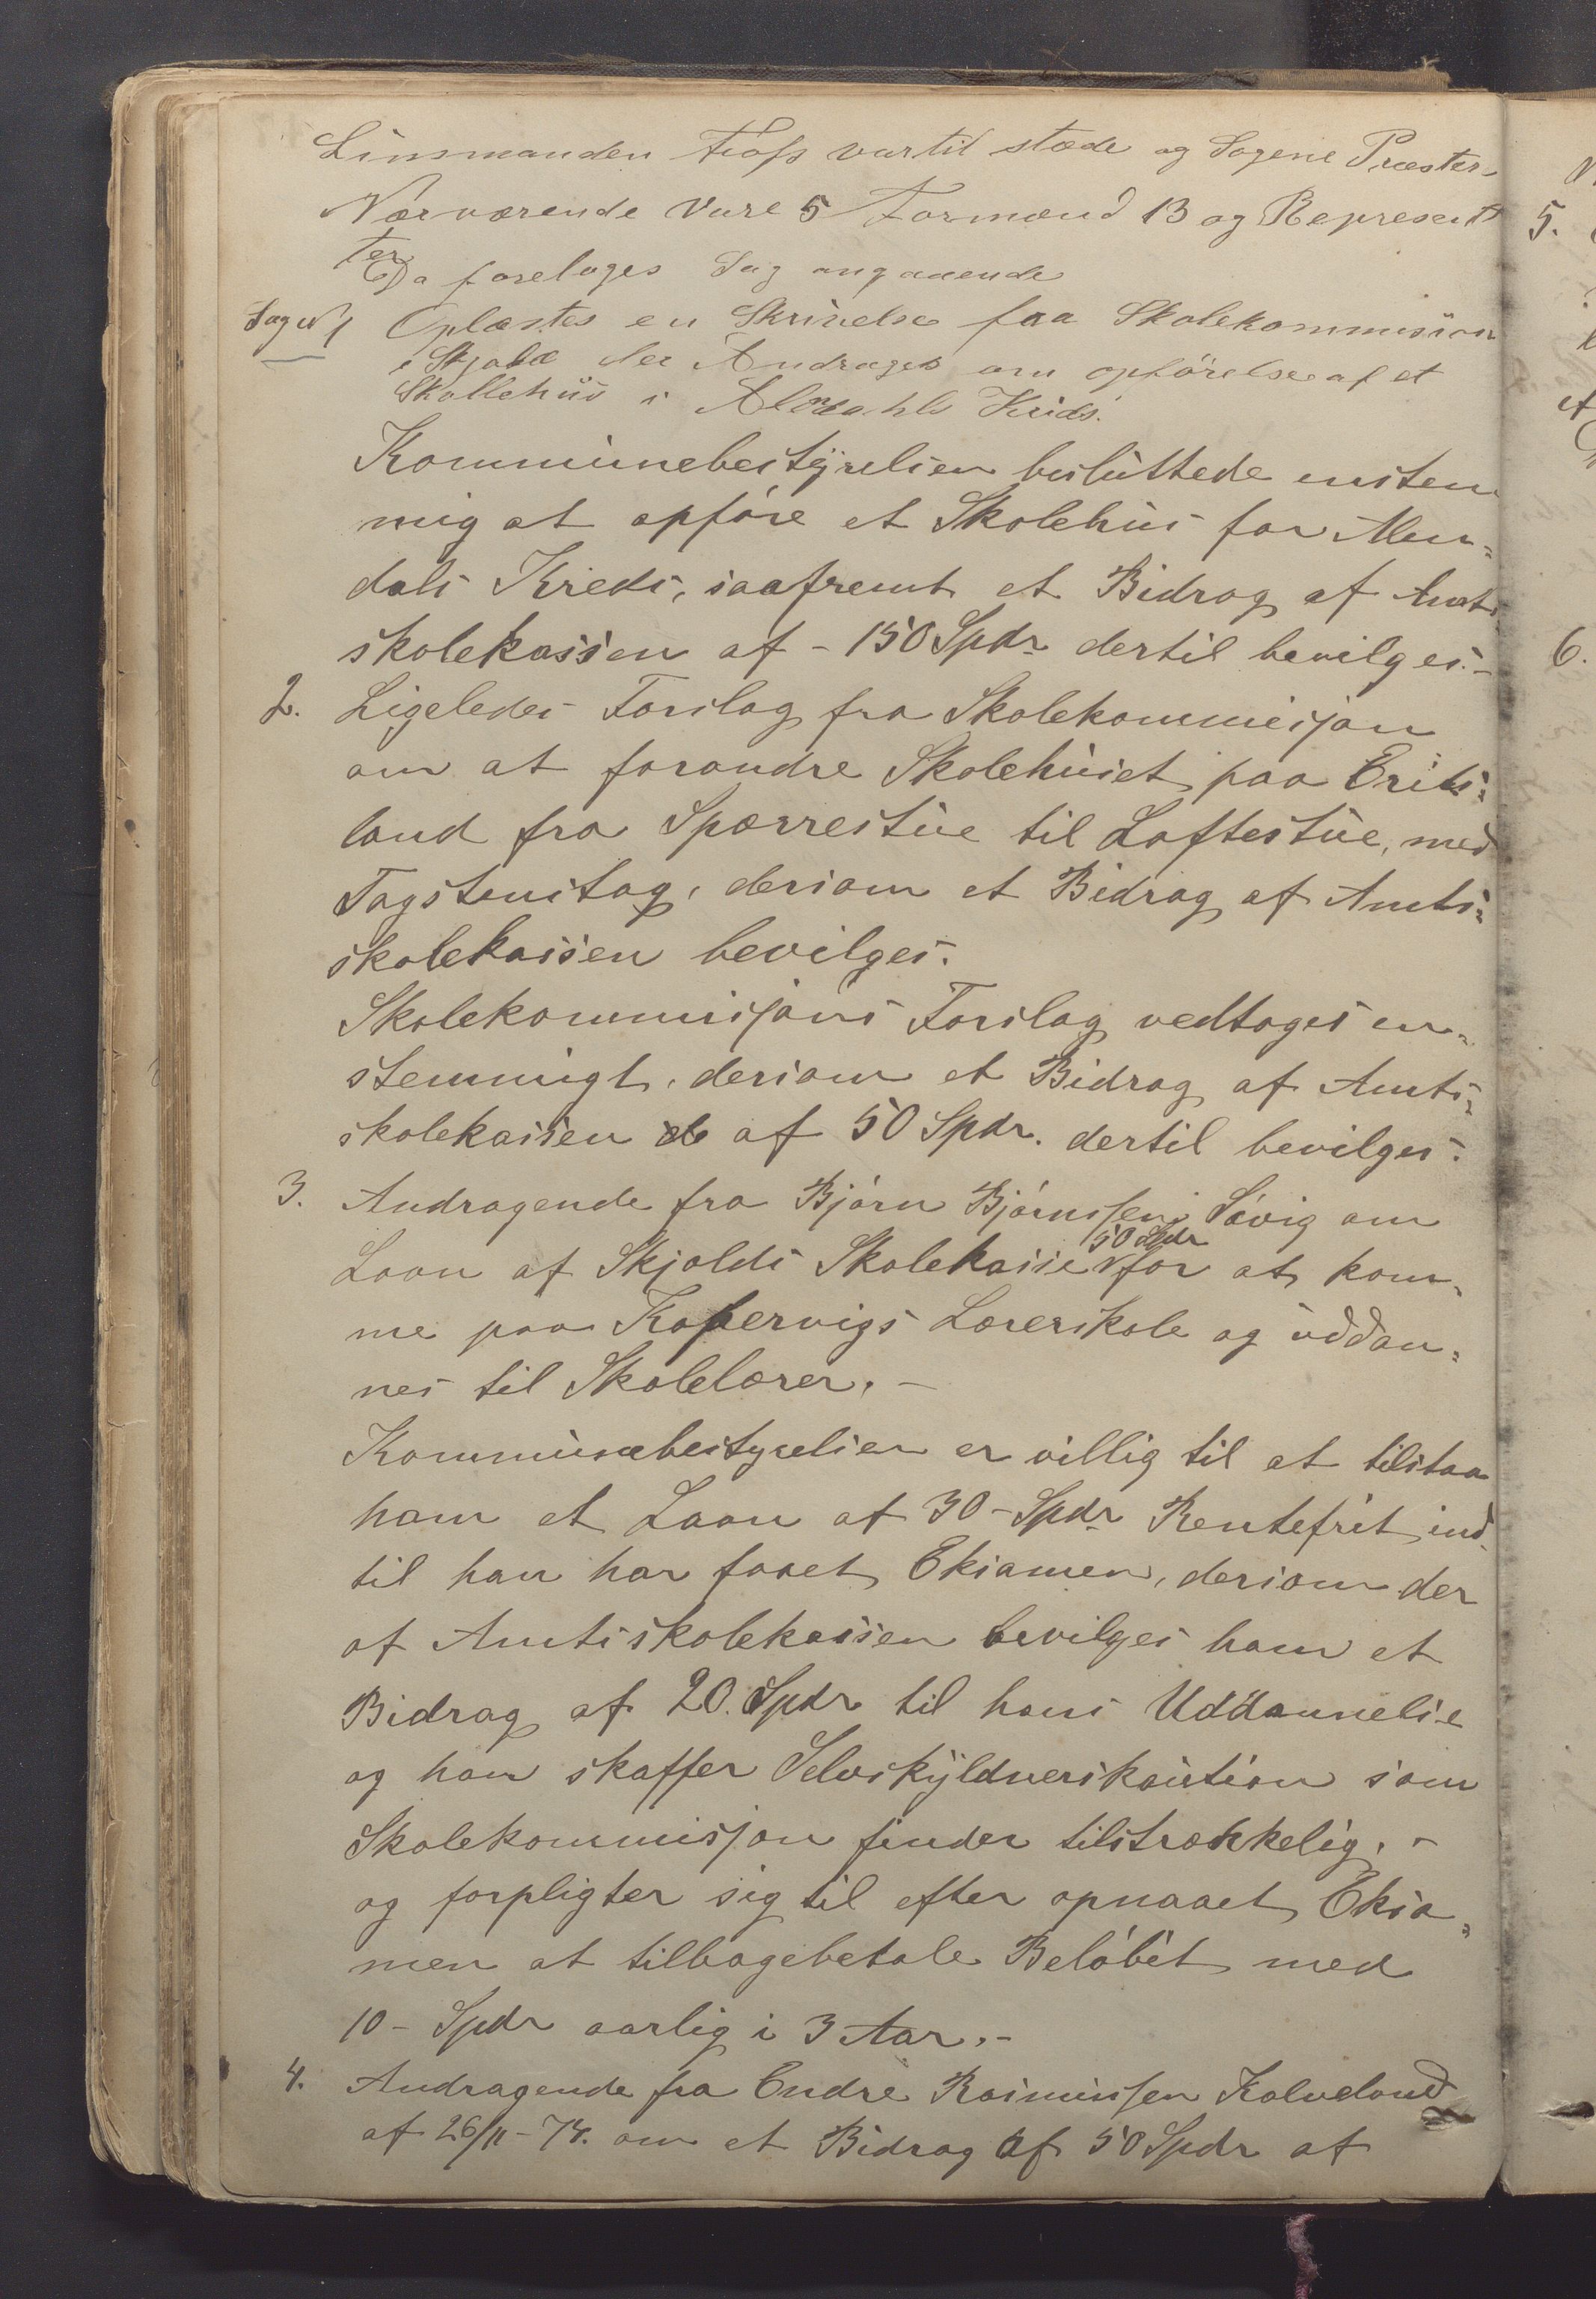 Linsmanden var til stæde og Sogene Præster
Nærværende Vare 5 Formænd 13 og Represent
ter
Da foretoges Sag angaaende
Sag N 1 Oplæstes en Skrivelse fra Skolekommision
i Skjold der Andrages om opførelse af et
Skollehus i Kreds.
Kommunebestÿrelsen besluttede ensten
mig at opføre et Skolehus for Alm-
dals Kreds, saafremt et Bidrag af Amts
skolekassen af - 150 Spdr dertil bevilges.-
2. Ligeledes Forslag fra Skolekommisjon
om at forandre Skolehuset paa Eriks-
land fra Sperrestue til Loftestue, med
Tagstenstag, dersom et Bidrag af Amts-
skolekassen bevilges.
Skolekommisjons Forslag vedtages en-
stemmigt, dersom et Bidrag af Amts-
skolekassen af 50 Spdr. dertil bevilges.
3. Andragende fra Bjørn Bjørnssen Søvig om
50 Spdr
Laan af Skjolds Skolekasse for at kom-
me paa Kopervigs Lærerskole og uddan-
nes til Skolelærer. -
Kommunebestyrelsen er villig til at tilstaa
ham et Laan af 30 - Spdr Rentefrit ind-
til han har faaet Eksamen, dersom der
af Amtsskolekassen bevilges ham et
Bidrag af 20. Spdr til hans Uddannelse
og han skaffer Selvskÿldnerskaution som
Skolekommisjon finder tilstrækkelig. -
og forpligter sig til efter opnaaet Eksa-
men at tilbagebetale Beløbet med
10 - Spdr aarlig i 3 Aar. -
4. Andragende fra Endre Rasmussen Kalveland
af 26/11 - 74. om et Bidrag af 50 Spdr af
5.
6.